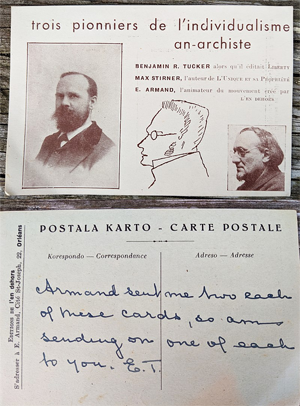 trois pionniers de l'individualisme
an-archiste
BENJAMIN R. TUCKER alors qu'il éditait LIBERTY
MAX STIRNER, l'auteur de L'UNIQUE ET SA PROPRIÉTÉ
E. ARMAND, l'animateur du mouvement créé par
L'EN DEHORS
POSTALA KARTO - CARTE POSTALE
Korespondo — Correspondance
Adreso — Adresse
Armand sent me two each
of these cards, so am
sending on one of each
to you. E.T.
EDITIONS DE l'en dehors
S'adresser à E. Armand, Cité St-Joseph, 22, Orléans